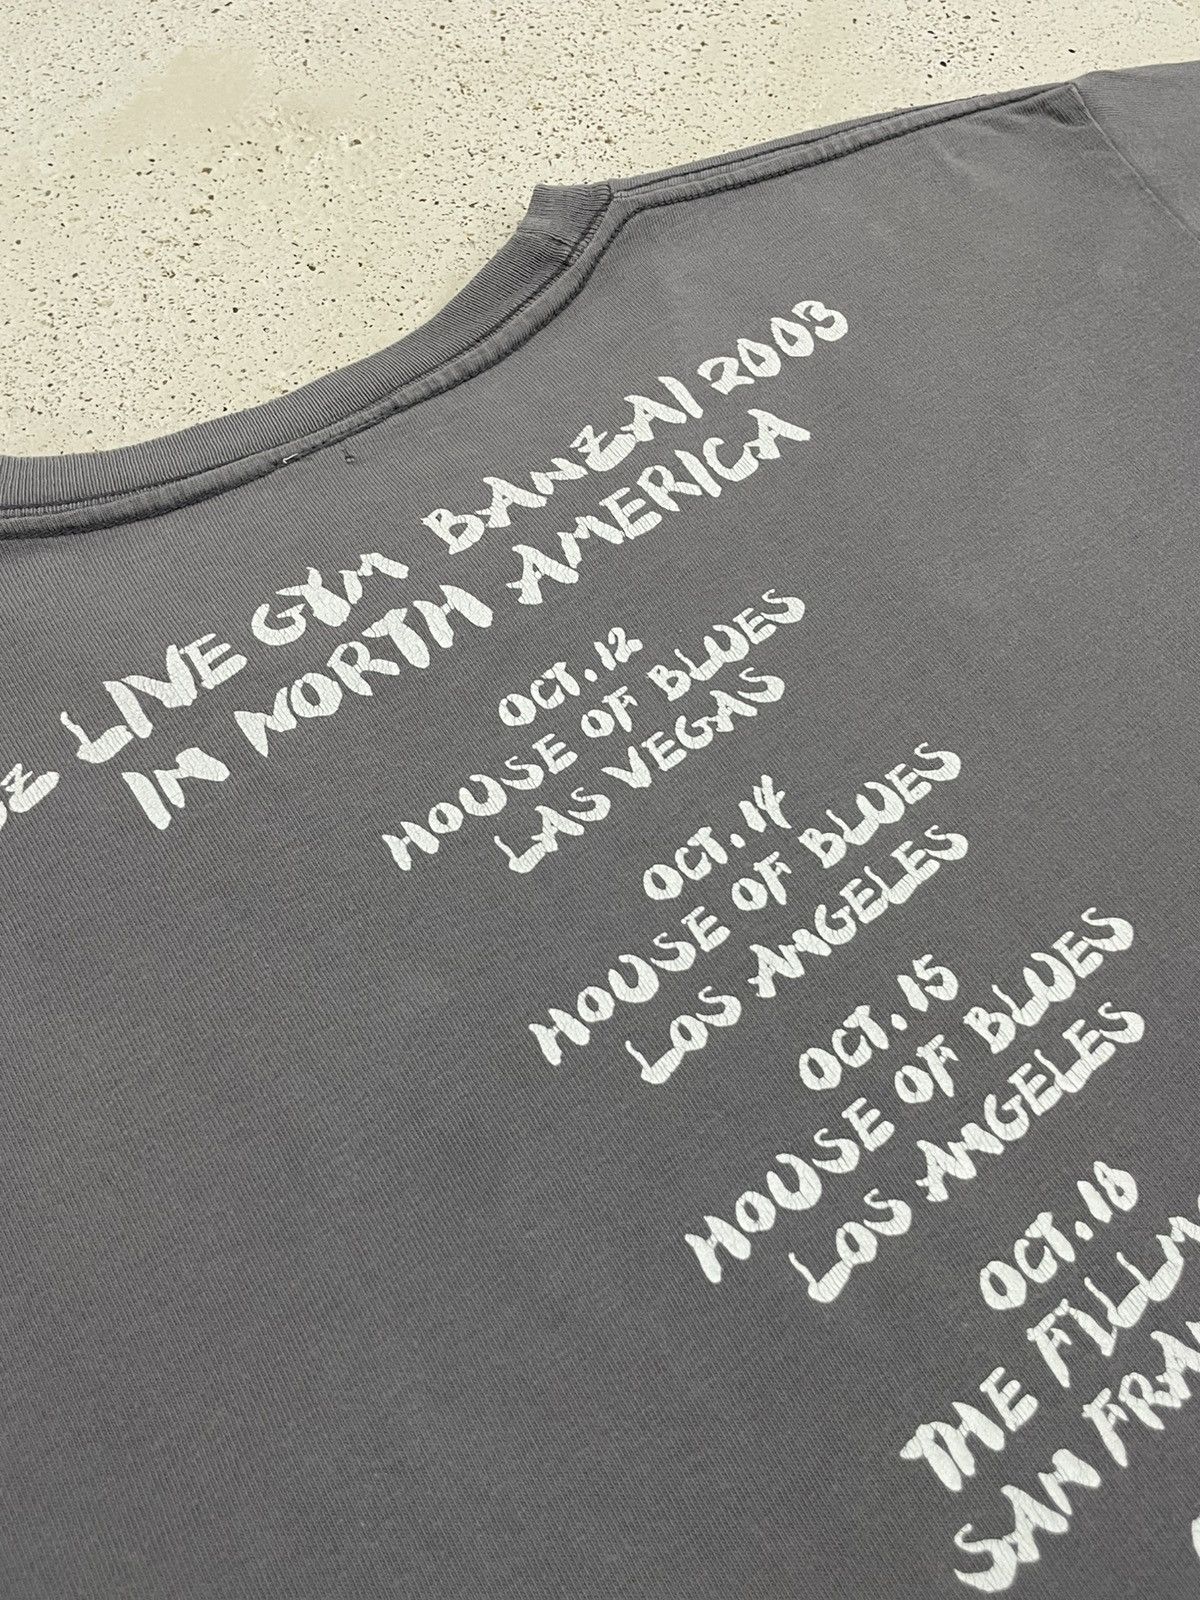 LIVE GYM BANZAI 2003
IN NORTH AMERICA
OCT. 12
HOUSE OF BLUES
LAS VEGAS
OCT. 14
HOUSE OF BLUES
LOS ANGELES
OCT. 15
HOUSE OF BLUES
LOS ANGELES
OCT. 18
THE
SAN